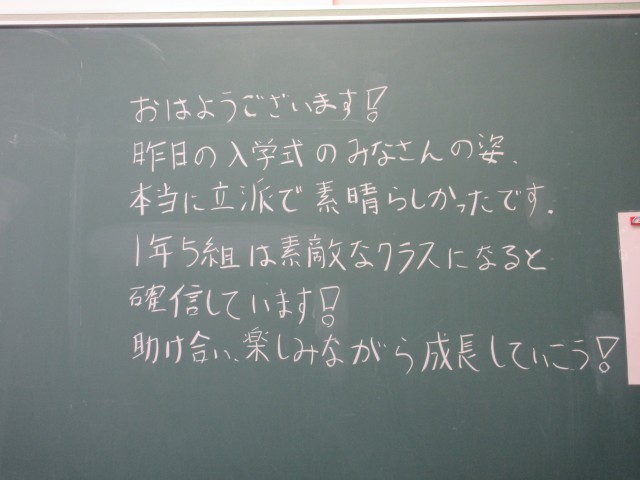 おはようございます!
昨日の入学式のみなさんの姿、
本当に立派で素晴らしかったです.
1年5組は素敵なクラスになると
確信しています!
助け合い、楽しみながら成長していこう!